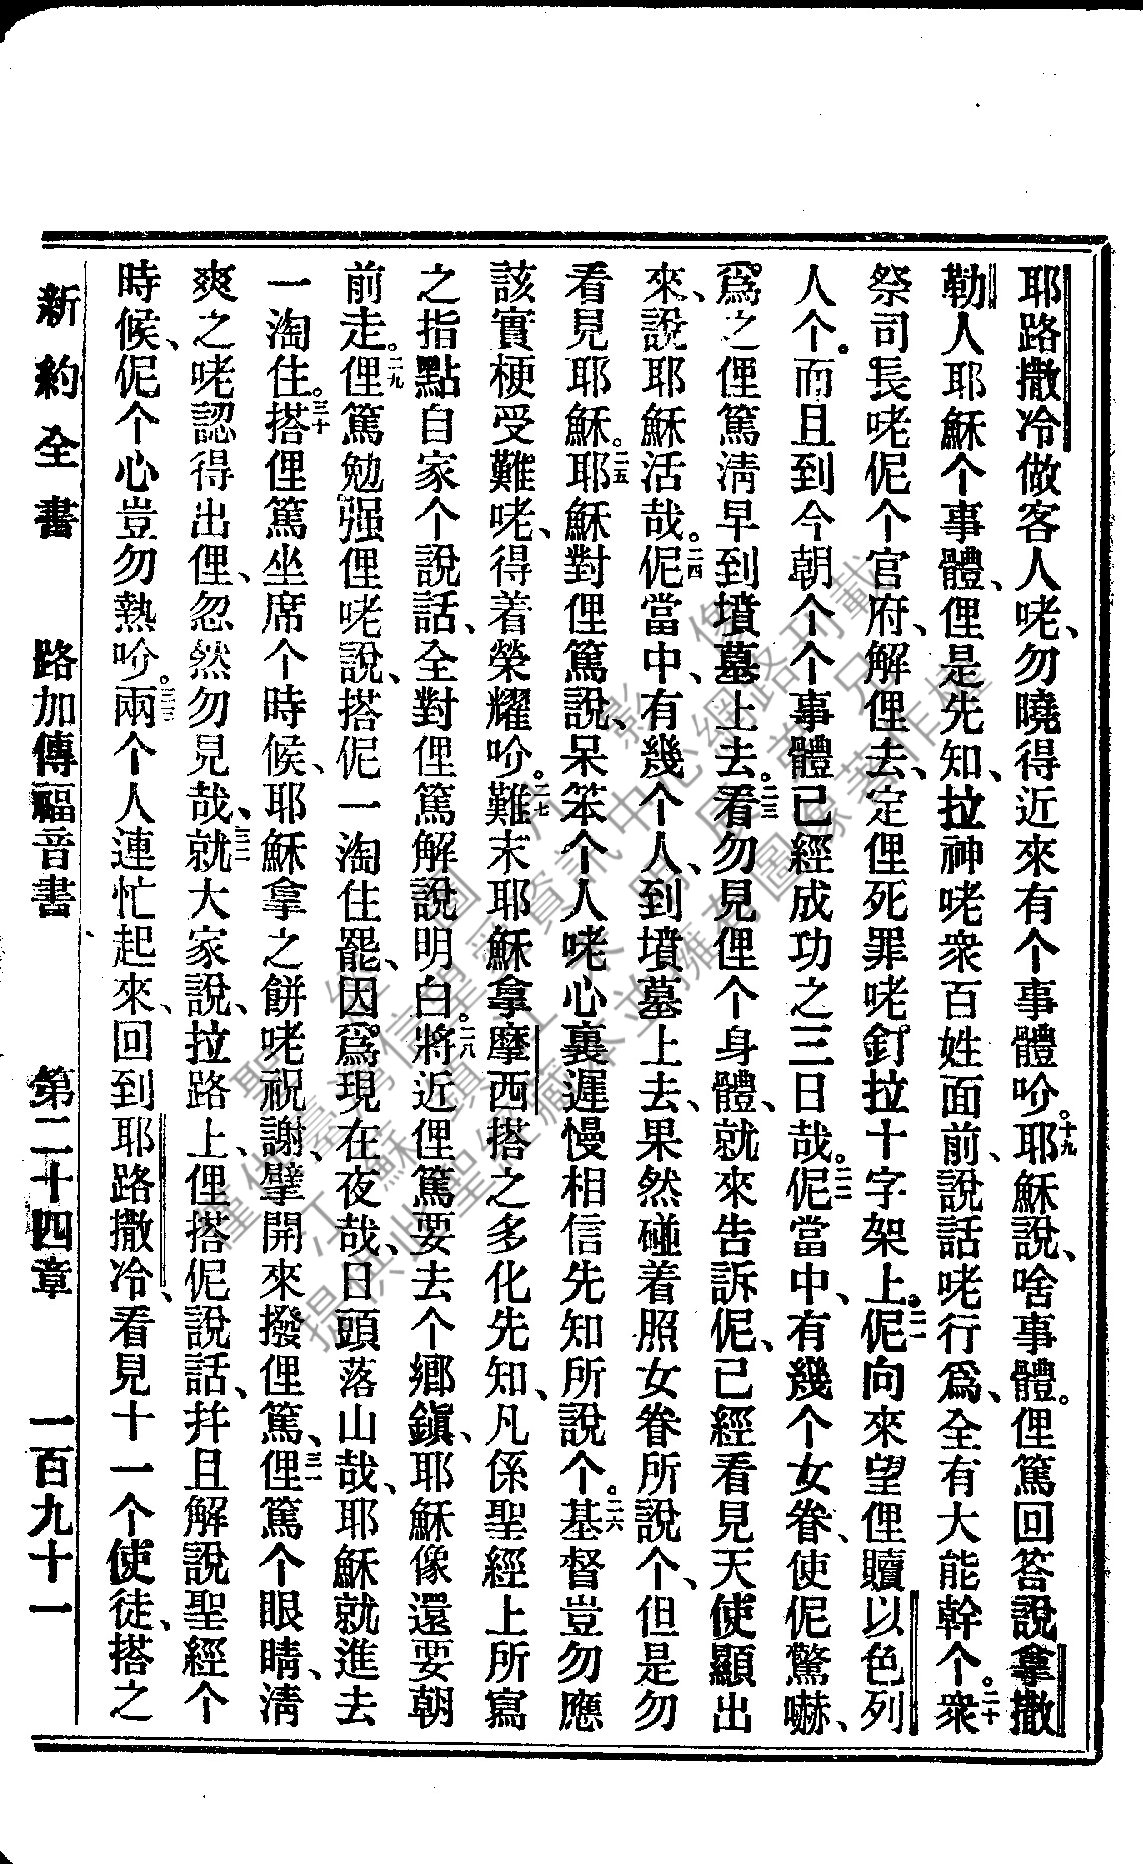 耶路撒冷做客人咾、勿曉得近來有个事體吤。十九耶穌說、啥事體。俚篤回答說拿撒
勒人耶穌个事體、俚是先知、拉神咾衆百姓面前、說話咾行爲、全有大能幹个。二十衆
祭司長咾伲个官府、解俚去、定俚死罪咾釘拉十字架上。二一伲向來望俚贖以色列
人个。而且到今朝个个事體已經成功之三日哉。二二伲當中、有幾个女眷、使伲驚嚇、
爲之俚篤淸早到墳墓上去。二三看勿見俚个身體、就來告訴伲、已經看見天使顯出
來、說耶穌活哉。二四伲當中、有幾个人、到墳墓上去、果然碰着照女眷所說个、但是勿
看見耶穌。二五耶穌對俚篤說、呆笨个人咾心裏遲慢相信先知所說个。二六基督豈勿應
該實梗受難咾、得着榮耀吤。二七難末耶穌拿摩西搭之多化先知、凡係聖經上所寫
之指點自家个說話、全對俚篤解說明白。二八將近俚篤要去个鄕鎭、耶穌像還要朝
前走。二九俚篤勉强俚咾說、搭伲一淘住罷、因爲現在夜哉、日頭落山哉、耶穌就進去
一淘住。三十搭俚篤坐席个時候、耶穌拿之餅咾祝謝、擘開來撥俚篤、三一俚篤个眼睛、淸
爽之咾認得出俚、忽然勿見哉、三二就大家說、拉路上、俚搭伲說話、幷且解說聖經个
時候、伲个心豈勿熱吤。三三兩个人連忙起來、回到耶路撒冷、看見十一个使徒、搭之
新約全書 路加傳福音書 第二十四章 一百九十一